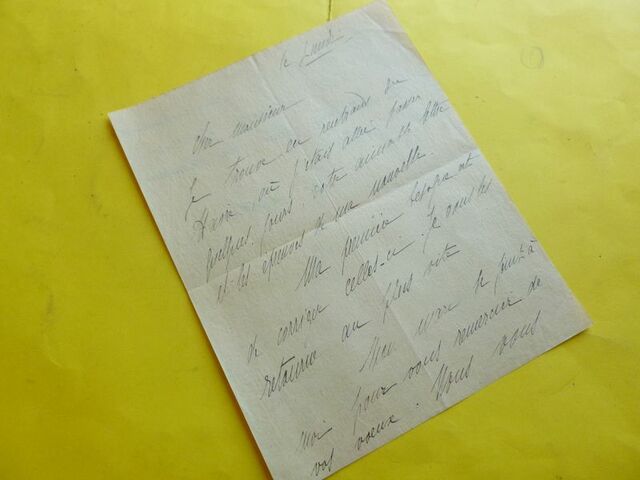 ce Lundi
Cher monsieur
Je trouve en rentrant du
Havre où j'étais allée passer
quelques jours, votre aimable lettre
et les épreuves de ma nouvelle
Ma première besogne est
de corriger celles-ci. Je vous les
retourne au plus vite
Mon mari se joint à
moi pour vous remercier de
vos voeux. Nous vous